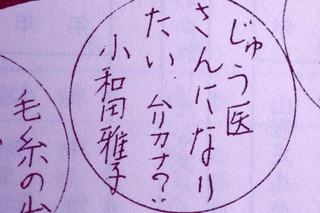 じゅう医
さんになり
たい.ムリカナ?
小和田雅子
毛糸の